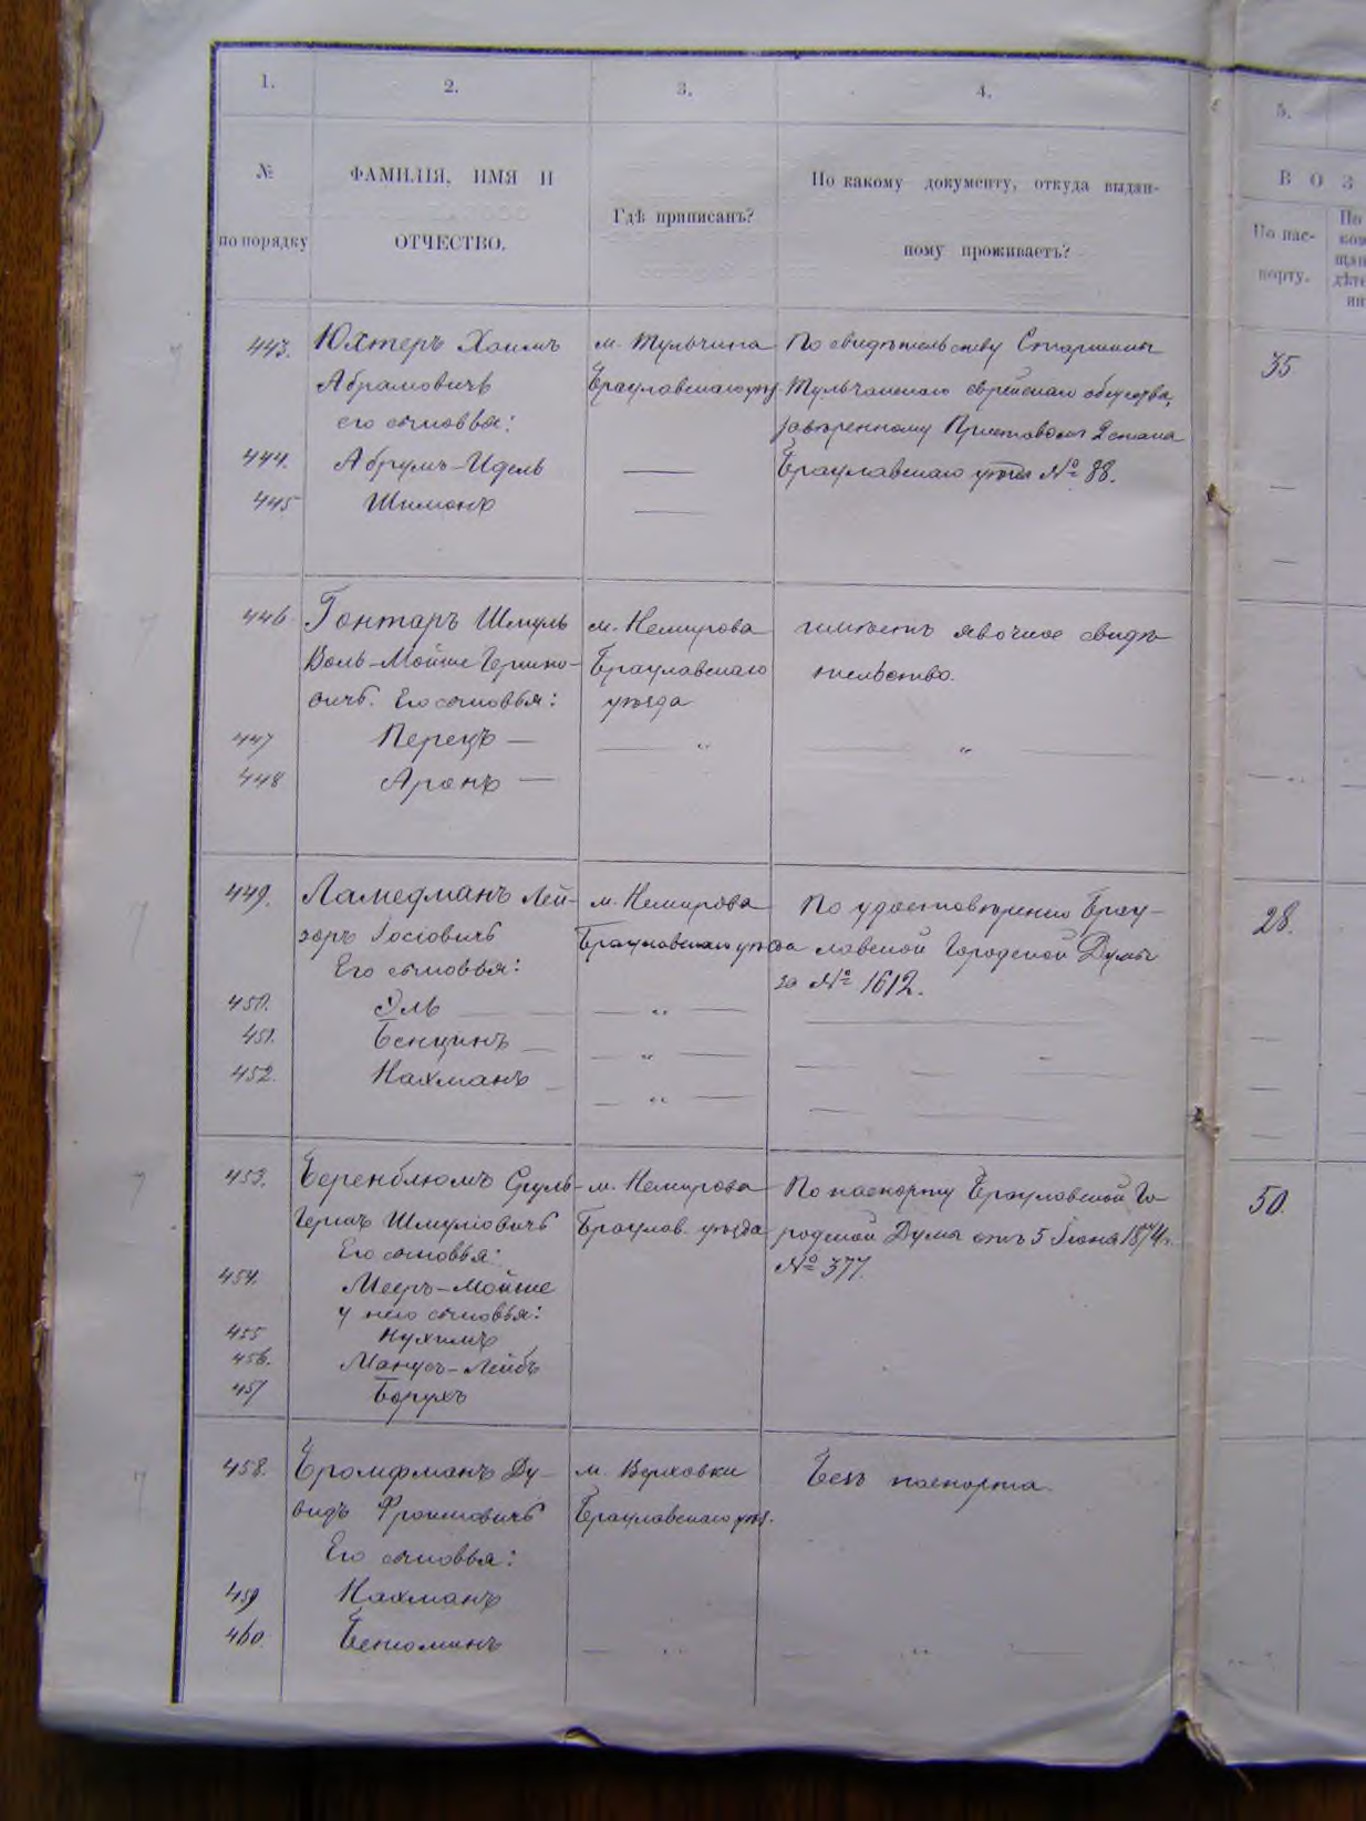 1. 2. 3. 4. 5.
№ по порядку
ФАМИЛІЯ, ИМЯ И
ОТЧЕСТВО.
Гдѣ приписанъ?
По какому документу, откуда выдан-
ному проживаетъ?
ВОЗ
По пас-
порту.
443. Юхтеръ Хаимъ м. Тульчина По свидѣтельству Старшины 35
Абрамовичъ Брацлавскаго уѣз. Тульчанскаго еврейскаго общества,
его сыновья: завѣренному Приставомъ 2 стана
444. Абрумъ-Идель — Брацлавскаго уѣзда № 88. —
445 Шимонъ — —
446 Гонтаръ Шмуль м. Немирова имѣетъ явочное свидѣ-
Воль-Мойше Гершко- Брацлавскаго тельство.
вичъ. Его сыновья: уѣзда
447 Перецъ — — " — "
448 Аронъ —
449. Ламедманъ Лей- м. Немирова По удостовѣренію Брац- 28.
зоръ Іосіовичъ Брацлавскаго уѣзда лавской Городской Думы
Его сыновья: за № 1612.
450. Эль — — " —
451. Бенціинъ — — " —
452. Нахманъ — — " —
453. Беренблюмъ Сруль- м. Немирова По паспорту Брацлавской Го- 50.
Гершъ Шмуліовичъ Брацлав. уѣзда родской Думы отъ 5 Іюня 1874 г.
Его сыновья: № 377.
454. Мееръ-Мойше
у него сыновья:
455 Нухимъ
456. Манусъ-Лейбъ
457 Борухъ
458. Бромфманъ Ду- м. Верховки Безъ паспорта.
видъ Фроимовичъ Брацлавскаго уѣз.
Его сыновья:
459 Нахманъ
460 Беніоминъ — " — "